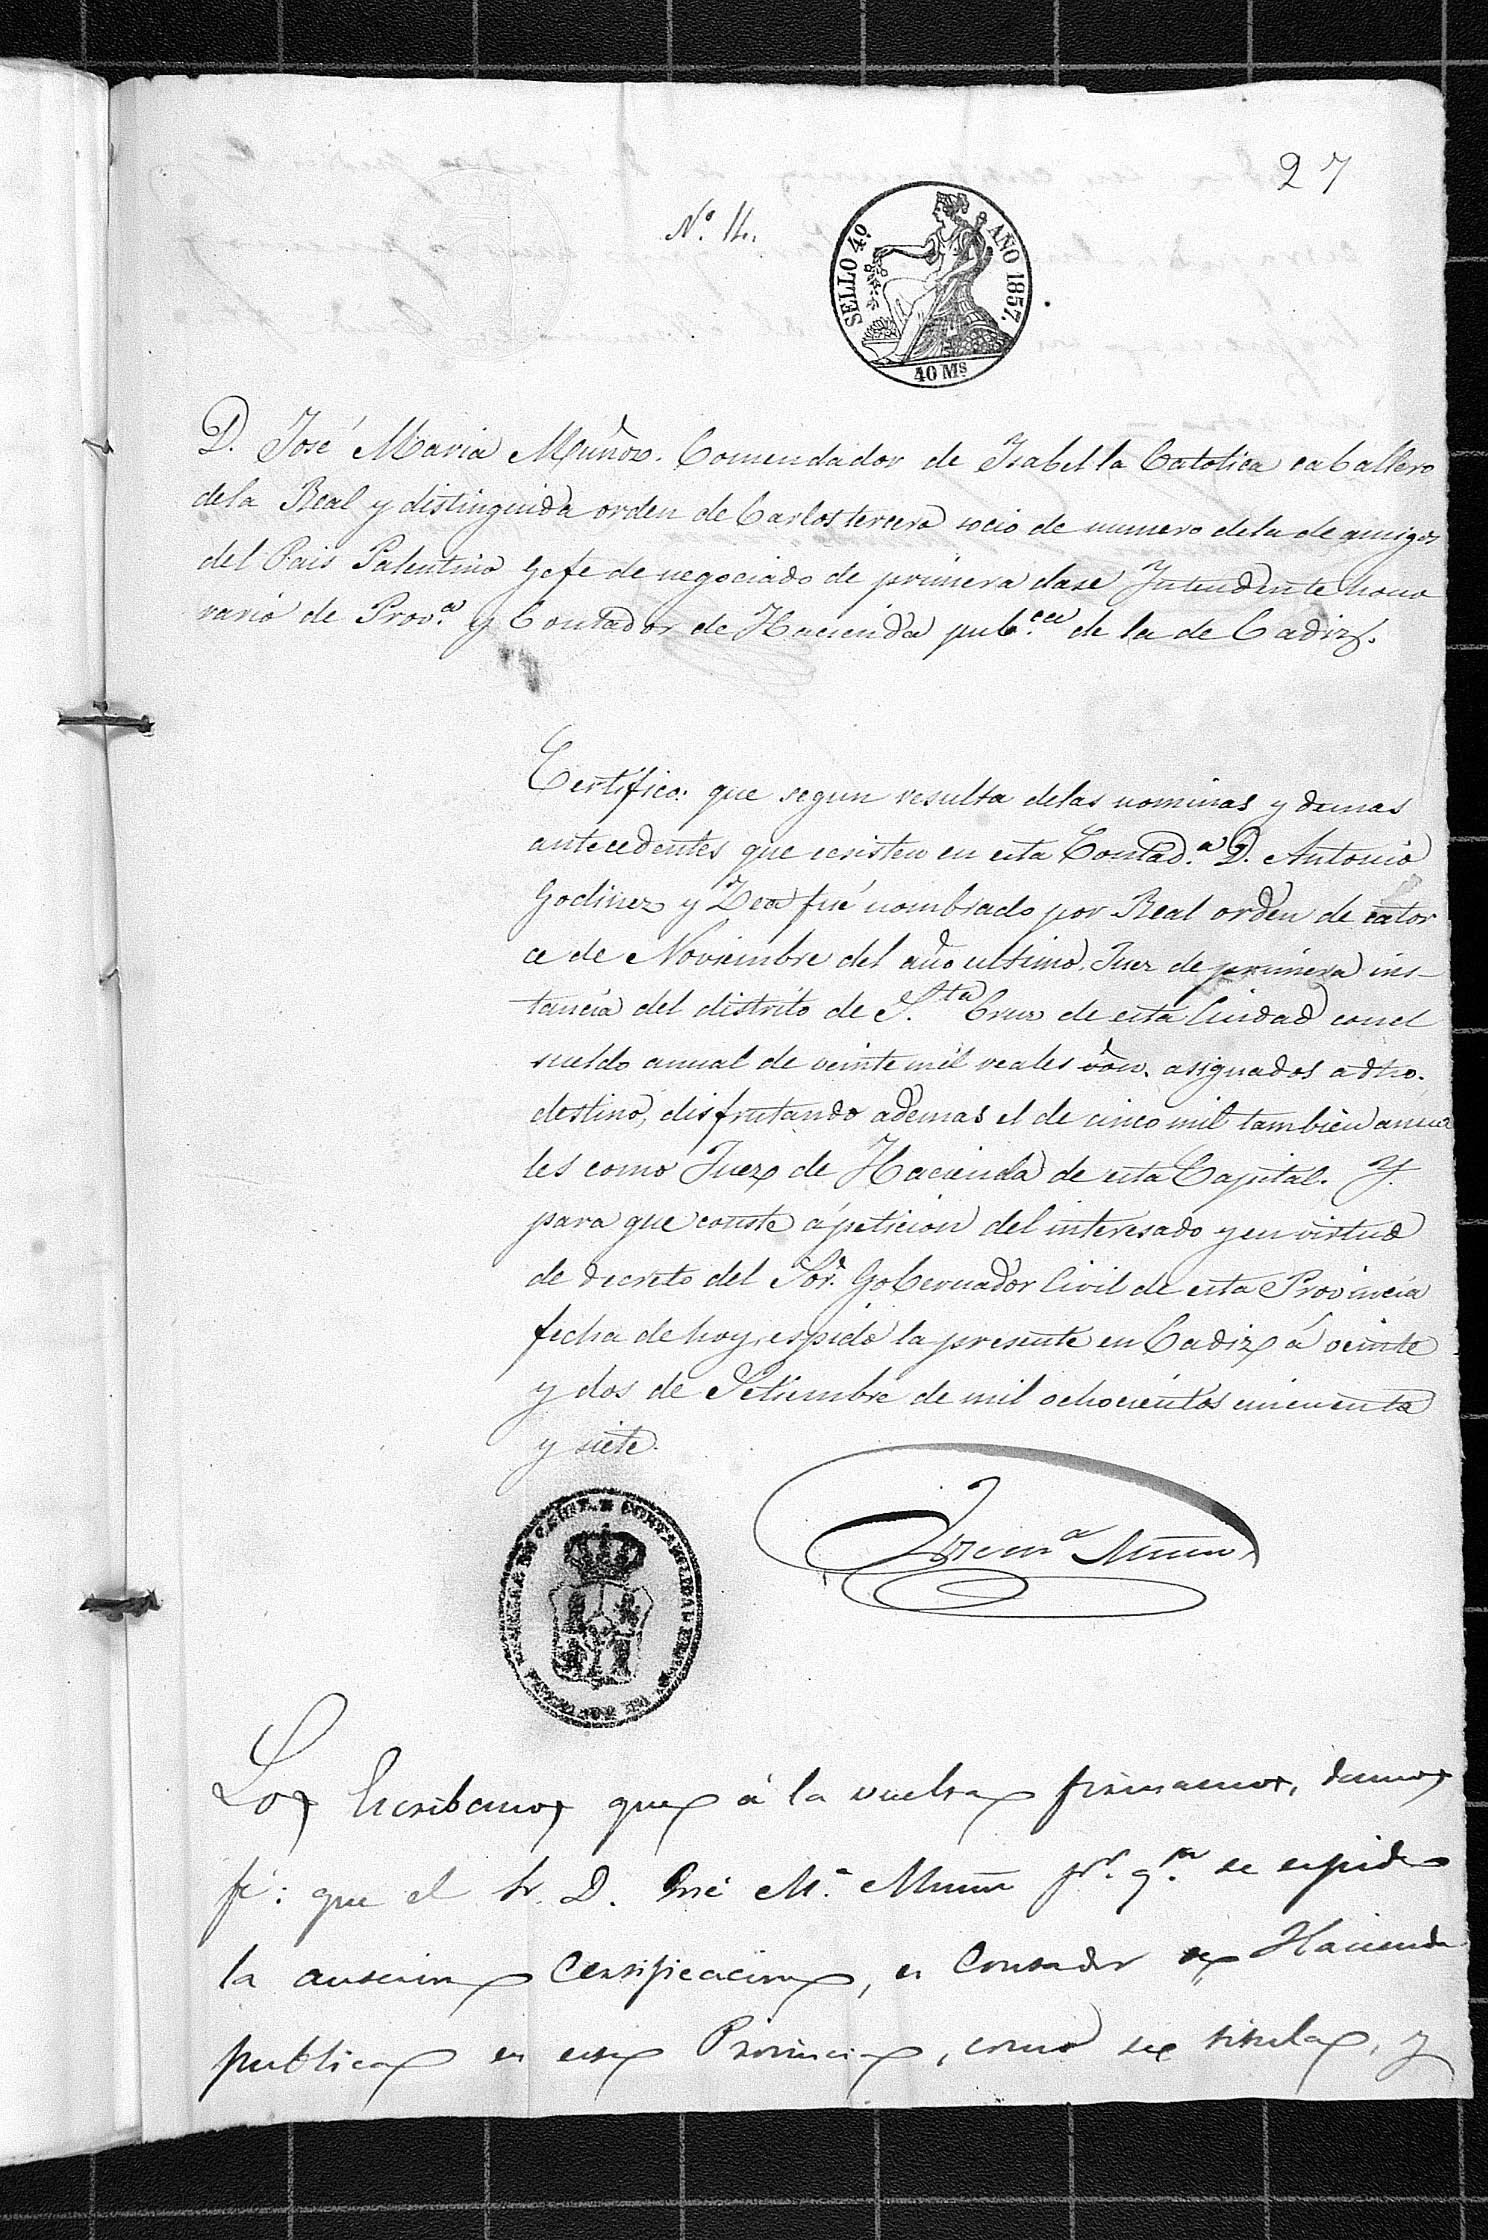 27
Nº. 14.
SELLO 4º. AÑO 1857.
40 Ms
D. José Maria Muñoz. Comendador de Isabel la Catolica caballero
dela Real y distinguida orden de Carlos tercero socio de numero dela de amigos
del Pais Palentino Gefe de negociado de primera clase Intendente hono
rario de Prov.ª y Contador de Hacienda pub.ca de la de Cadiz.
Certifico: que segun resulta delas nominas y demas
antecedentes que ecsisten en esta Contad.ª D. Antonio
Godinez y Zea fué nombrado por Real orden de cator
ce de Noviembre del año ultimo, Juez de primera ins-
tancia del distrito de S.ta Cruz de esta Ciudad con el
sueldo anual de veinte mil reales von. asignados a dho.
destino, disfrutando ademas el de cinco mil tambien anua
les como Juez de Hacienda de esta Capital. Y.
para que conste á peticion del interesado y en virtud
de decreto del Sor. Gobernador Civil de esta Provincia
fecha de hoy, espido la presente en Cadiz á veinte
y dos de Setiembre de mil ochocientos cincuenta
y siete.
José M.ª Muñoz
Los Escribanos que á la vuelta firmamos, damos
fé: que el Sr. D. José M.ª Muñoz pr. q.n se espide
la anterior Certificacion, es Contador de Hacienda
publica en esta Provincia, como se titula, y